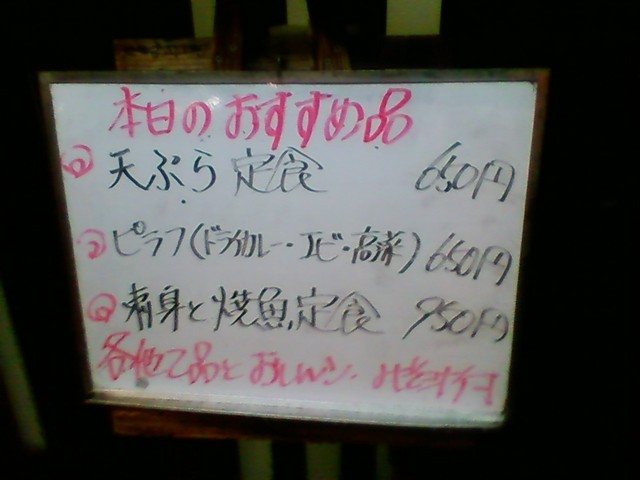 本日のおすすめ品
天ぷら定食 650円
ピラフ(ドライカレー・エビ・高菜) 650円
刺身と焼魚定食 950円
各他2品と